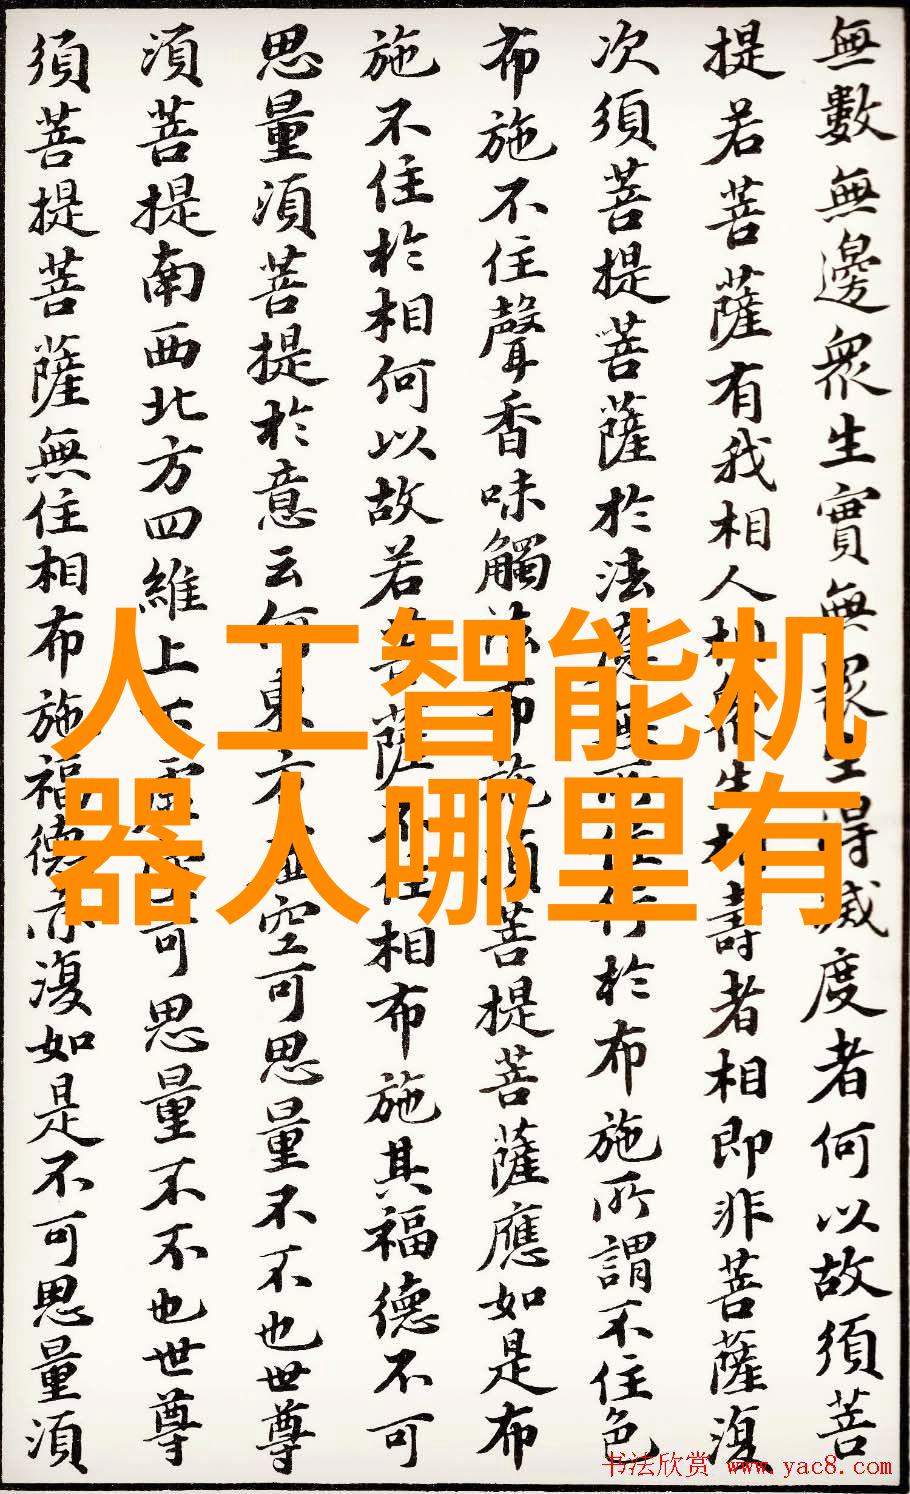 無數無邊眾生實無眾生得滅度者何以故須菩
提若菩薩有我相人相眾生相壽者相即非菩薩復
次須菩提菩薩於法應無所住行於布施所謂不住色
布施不住聲香味觸法布施須菩提菩薩應如是布
施不住於相何以故若菩薩不住相布施其福德不可
思量須菩提於意云何東方虛空可思量不不也世尊
須菩提南西北方四維上下虛空可思量不不也世尊
須菩提菩薩無住相布施福德亦復如是不可思量須
人工智能机
器人哪里有
书法欣赏 www.yac8.com